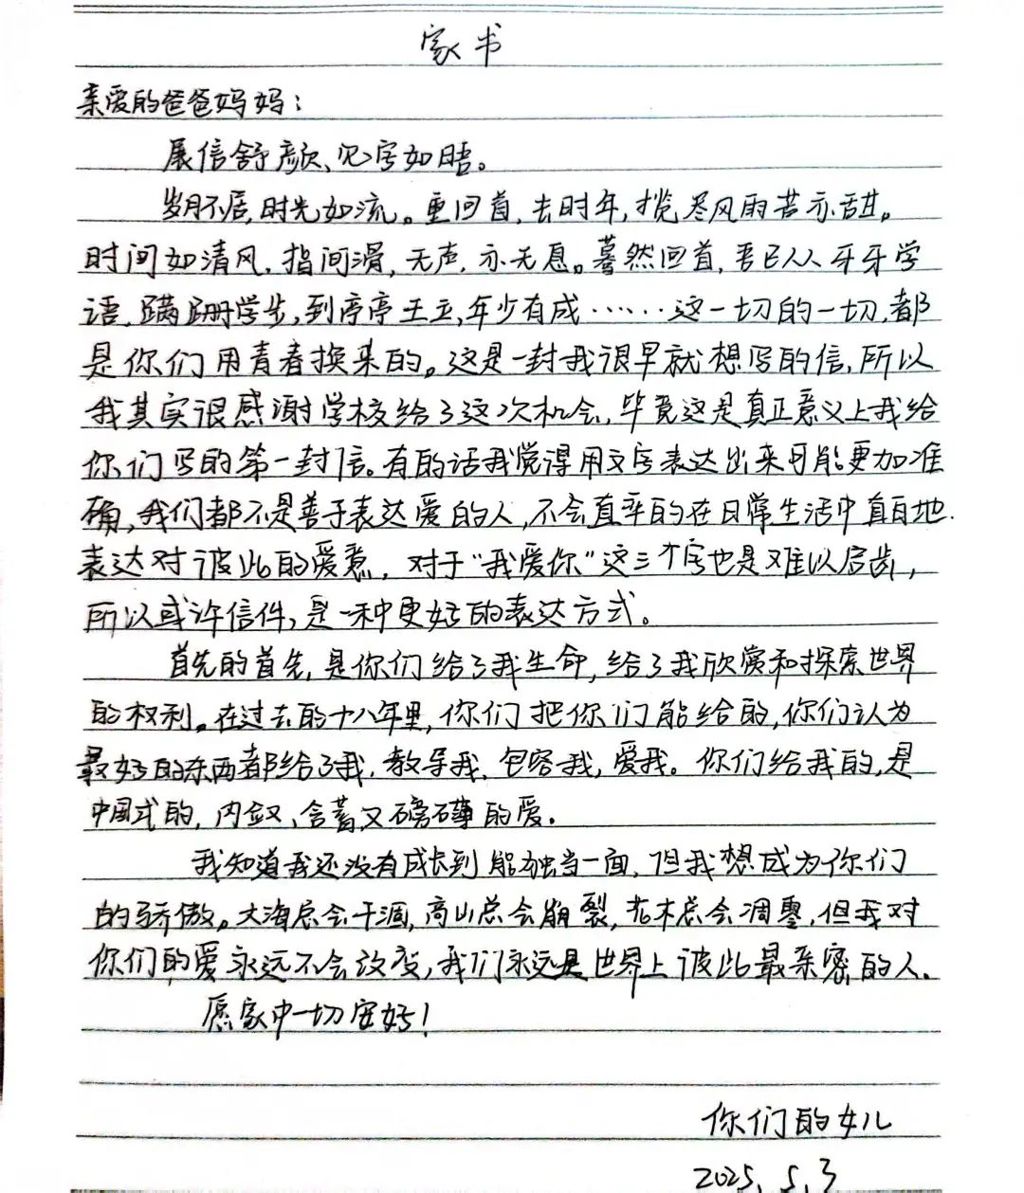 家书
亲爱的爸爸妈妈：
展信舒颜、见字如晤。
岁月不居，时光如流。重回首，去时年，揽尽风雨苦亦甜。
时间如清风，指间滑，无声，亦无息。蓦然回首，吾已从牙牙学
语，蹒跚学步，到亭亭玉立，年少有成……这一切的一切，都
是你们用青春换来的。这是一封我很早就想写的信，所以
我其实很感谢学校给了这次机会，毕竟这是真正意义上我给
你们写的第一封信。有的话我觉得用文字表达出来可能更加准
确，我们都不是善于表达爱的人，不会直率的在日常生活中直白地
表达对彼此的爱意，对于“我爱你”这三个字也是难以启齿，
所以或许信件，是一种更好的表达方式。
首先的首先，是你们给了我生命，给了我欣赏和探索世界
的权利。在过去的十八年里，你们把你们能给的，你们认为
最好的东西都给了我，教导我，包容我，爱我。你们给我的，是
中国式的，内敛、含蓄又磅礴的爱。
我知道我还没有成长到能独当一面，但我想成为你们
的骄傲。大海总会干涸，高山总会崩裂，花木总会凋零，但我对
你们的爱永远不会改变，我们永远是世界上彼此最亲密的人。
愿家中一切安好！
你们的女儿
2025.5.3